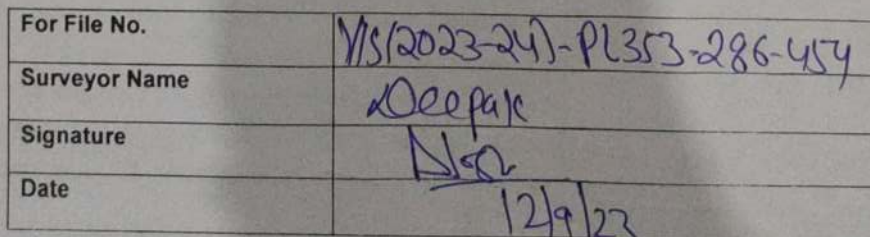 For File No. VIS(2023-24)-PL353-286-454
Surveyor Name Deepak
Signature
Date 12/9/23